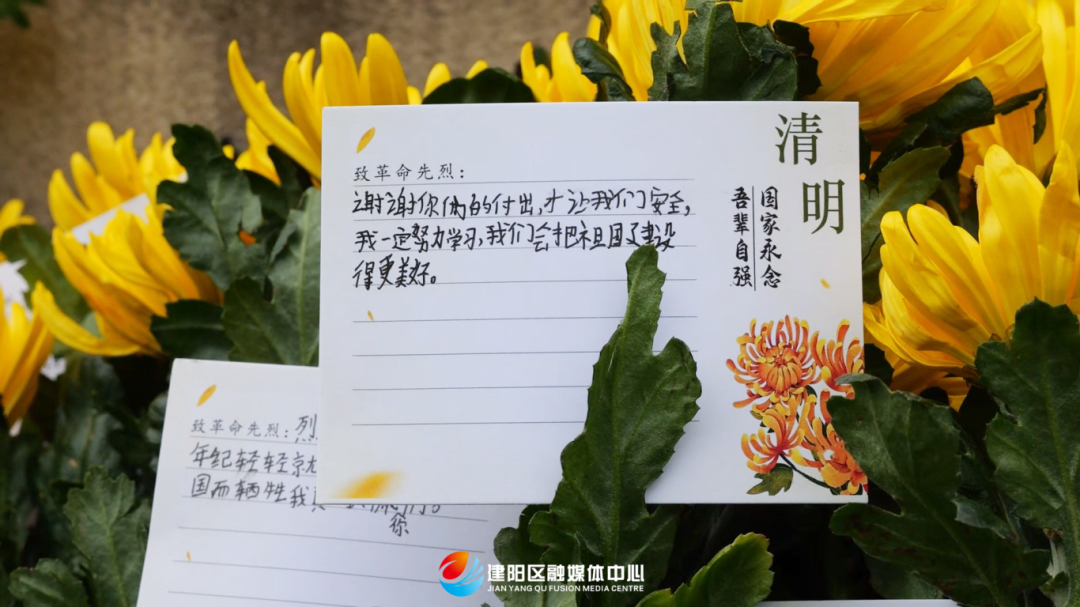 清明
国家永念
吾辈自强
致革命先烈：
谢谢你俩的付出，才让我们安全，
我一定努力学习，我们会把祖国建设
得更美好。
致革命先烈：烈
年纪轻轻京
国而牺牲我
你
建阳区融媒体中心
JIAN YANG QU FUSION MEDIA CENTRE